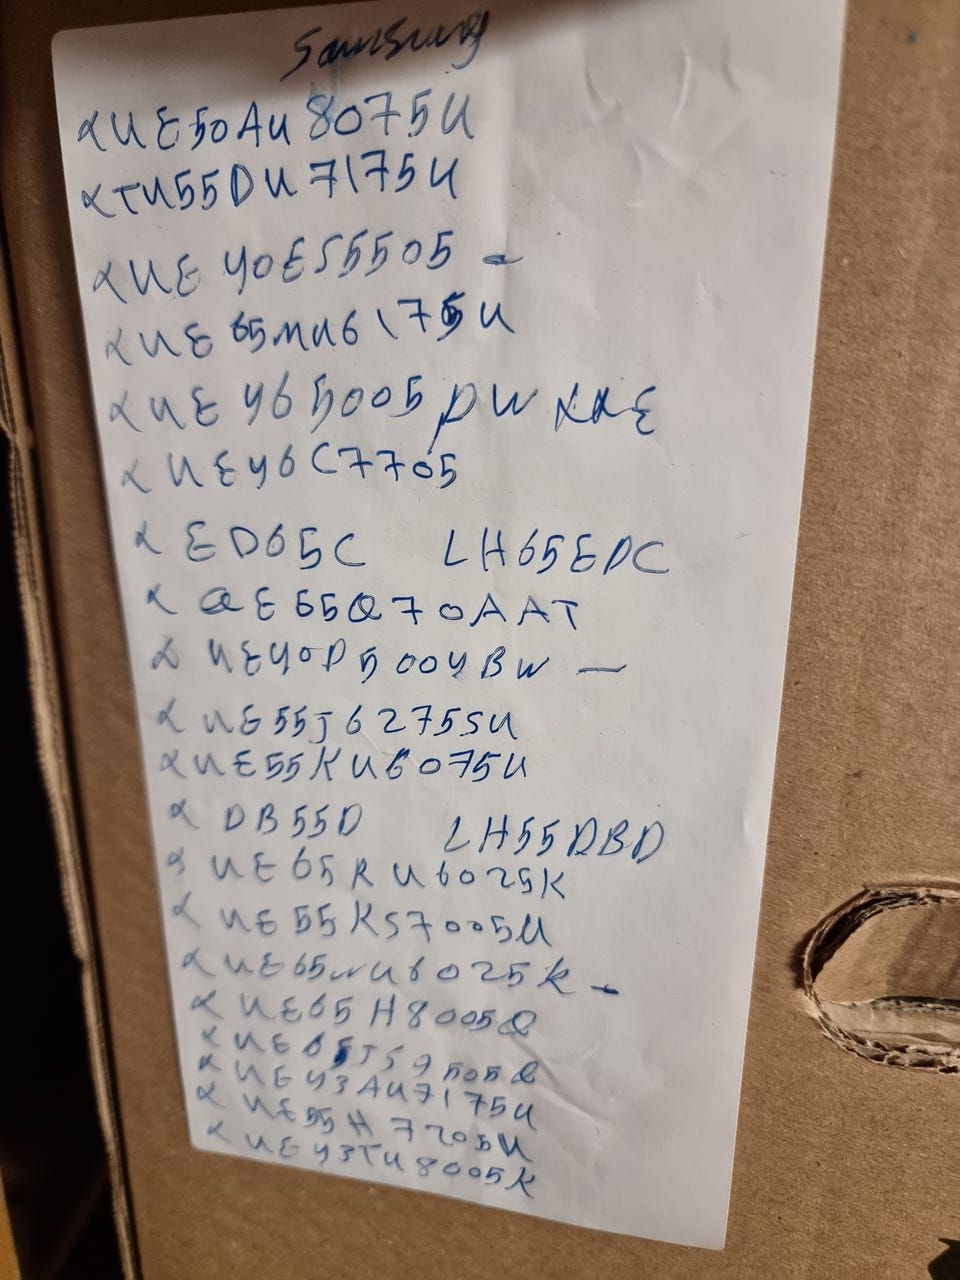 Samsung
α UE50AU8075U
α TU55DU7175U
α UE40ES5505 -
α UE65MU6175U
α UE465005PWXXE
α UE46C7705
α ED65C LH65EDC
α QE55Q70AAT
α UE40D5004BW —
α UE55J6275SU
α UE55KU6075U
α DB55D LH55DBD
α UE65RU6025K
α UE55KS7005U
α UE65NU6025K -
α UE65H8005Q
α UE65JS9505Q
α UE43AU7175U
α UE55H7205U
α UE43TU8005K